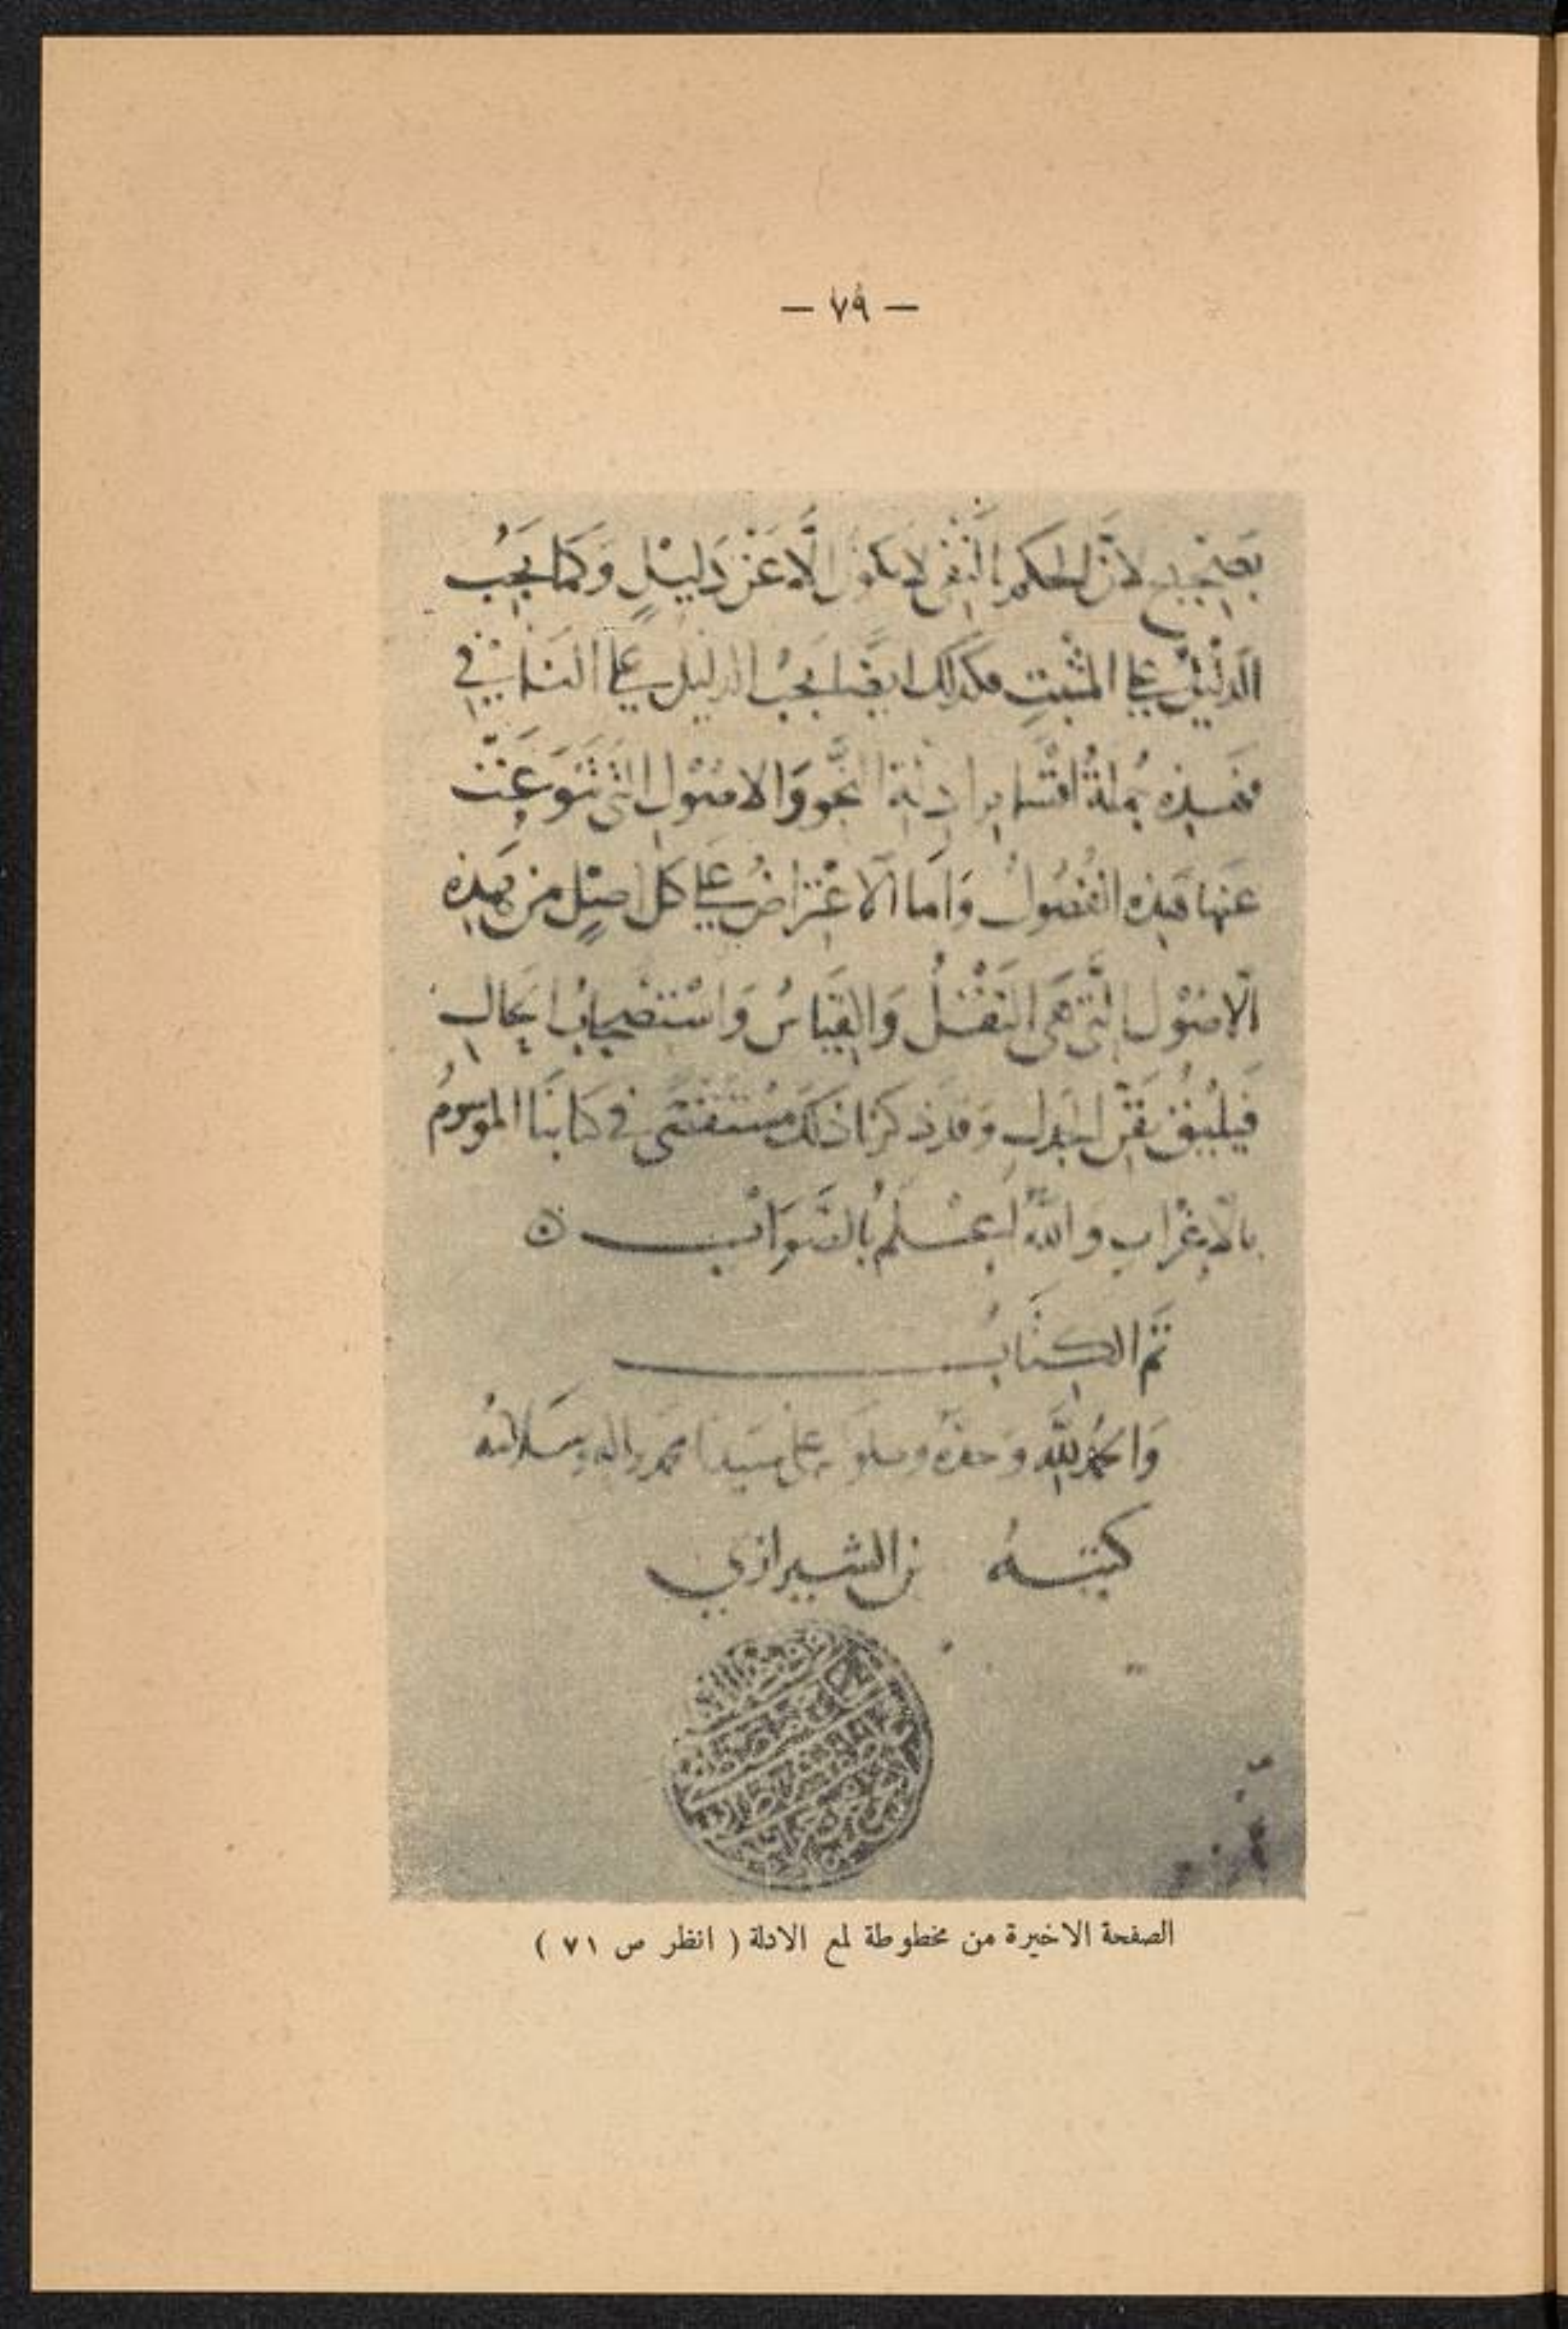 — ٧٩ —
بصحيح لان الحكم بالنفى لا يكون الا عن دليل وكما يجب
الدليل على المثبت فكذلك ايضا يجب الدليل على النافي
فهذه جملة اقسام ادلة النحو والاصول التى تنوعت
عنها هذه الفصول واما الاعتراض على كل اصل من هذه
الاصول التى هى النقل والقياس واستصحاب الحال
فيليق بفن الجدل وقد ذكرنا ذلك مستقصى في كتابنا الموسوم
بالاغراب والله اعلم بالصواب
تم الكتاب
والحمد لله وحده على سيدنا محمد واله وسلامه
كتبه الشيرازي
الصفحة الاخيرة من مخطوطة لمع الادلة ( انظر ص ٧١ )